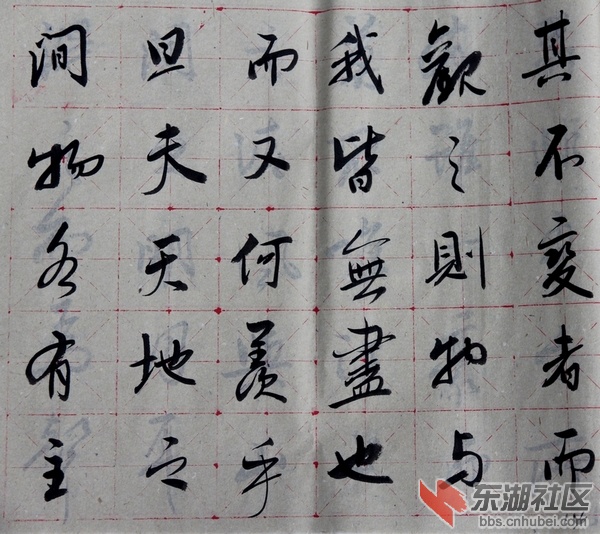 其不變者而
觀之則物与
我皆無盡也
而又何羨乎
且夫天地之
間物各有主
东湖社区
bbs.cnhubei.com